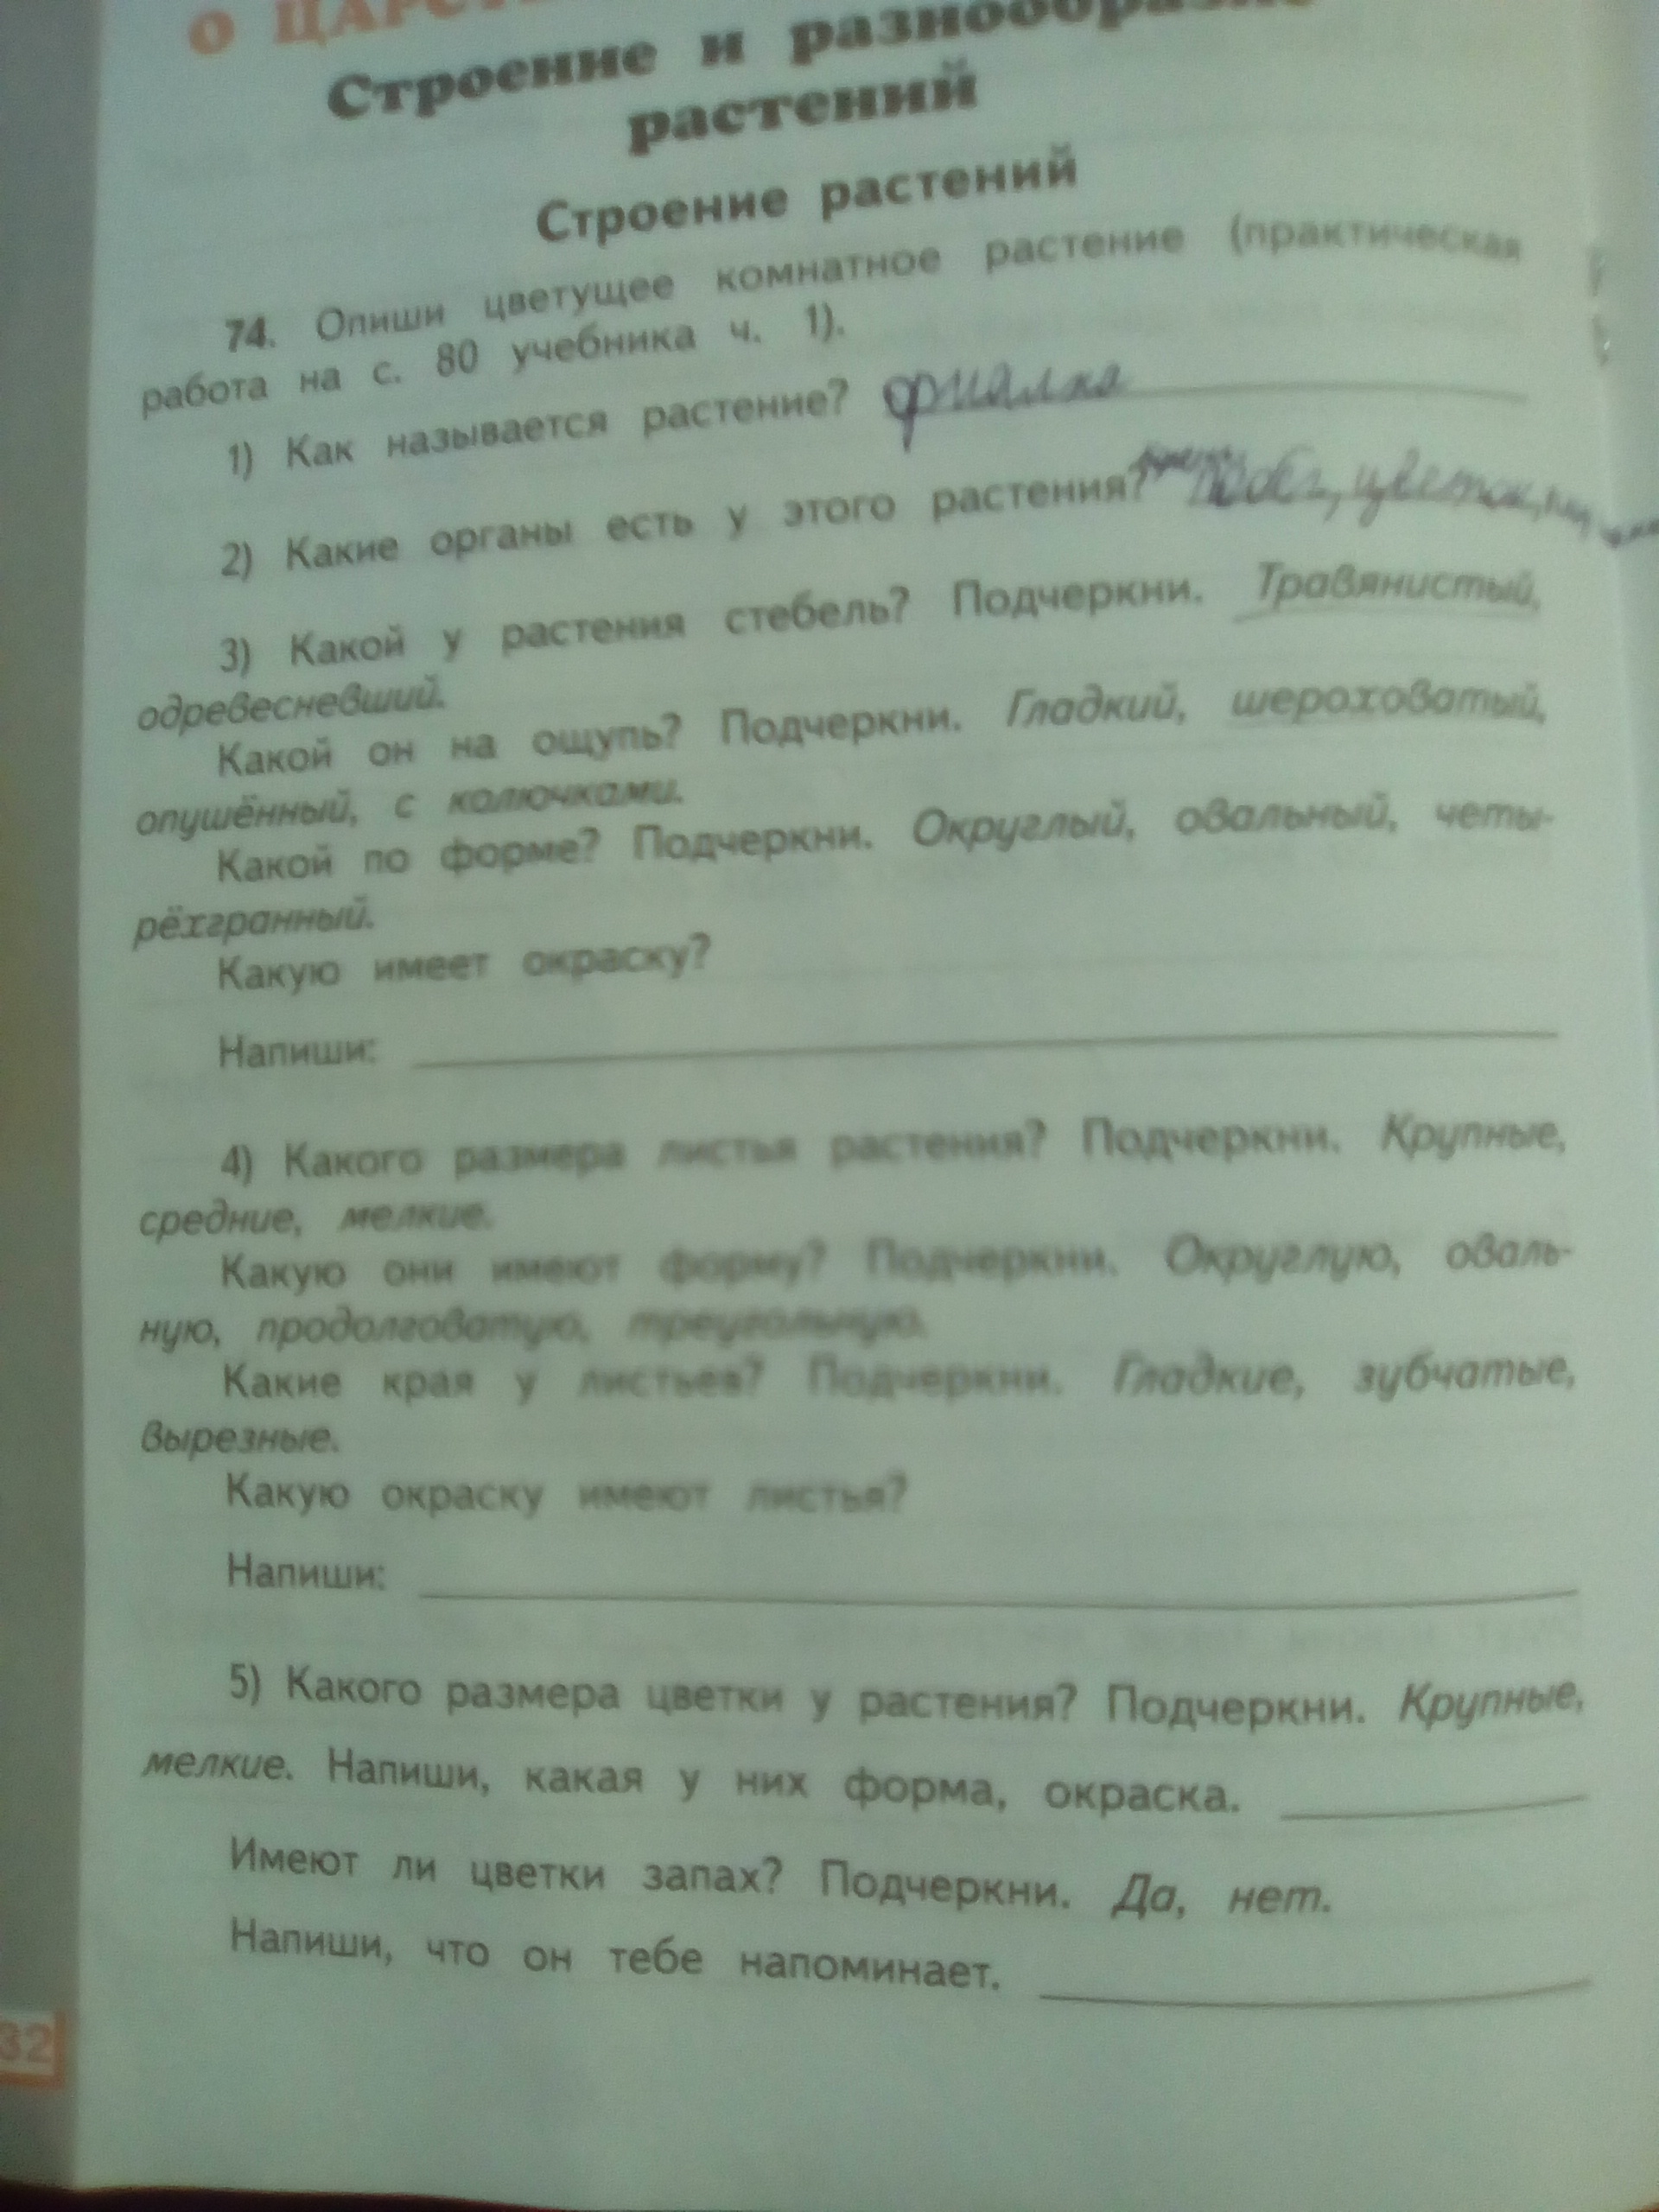 О ЦАРСТ
Строение и разнообразие
растений
Строение растений
74. Опиши цветущее комнатное растение (практическая
работа на с. 80 учебника ч. 1).
1) Как называется растение? фиалка
2) Какие органы есть у этого растения? побег, цветок,
3) Какой у растения стебель? Подчеркни. Травянистый,
одревесневший.
Какой он на ощупь? Подчеркни. Гладкий, шероховатый,
опушённый, с колючками.
Какой по форме? Подчеркни. Округлый, овальный, четы-
рёхгранный.
Какую имеет окраску?
Напиши:
4) Какого размера листья растения? Подчеркни. Крупные,
средние, мелкие.
Какую они имеют форму? Подчеркни. Округлую, оваль-
ную, продолговатую, треугольную.
Какие края у листьев? Подчеркни. Гладкие, зубчатые,
вырезные.
Какую окраску имеют листья?
Напиши:
5) Какого размера цветки у растения? Подчеркни. Крупные,
мелкие. Напиши, какая у них форма, окраска.
Имеют ли цветки запах? Подчеркни. Да, нет.
Напиши, что он тебе напоминает.
32